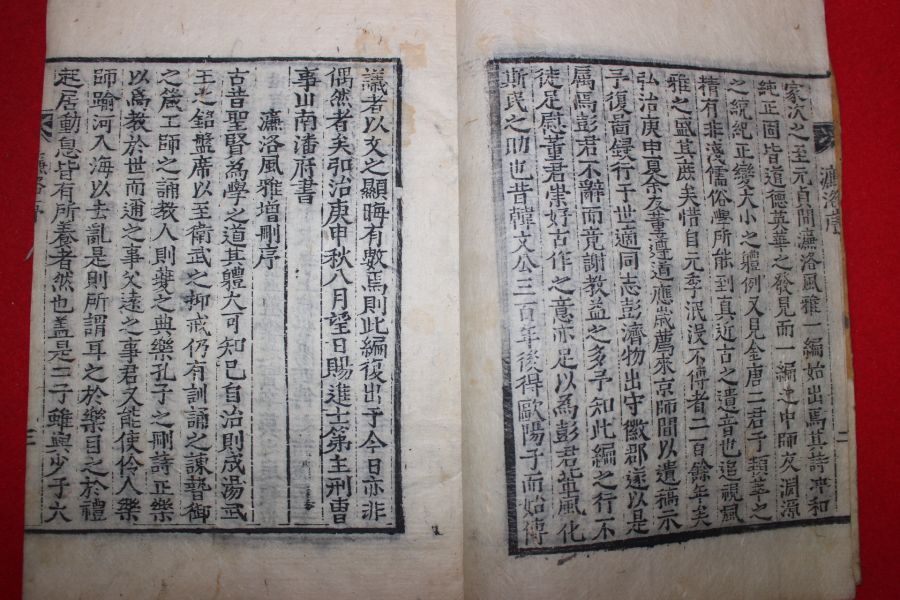 濂洛序
二
家次之至元貞間濂洛風雅一編始出焉其詩冲和
純正固皆道德英華之發見而一編之中師友淵源
之統紀正變大小之體例又見金唐二君子類萃之
精有非淺儒俗學所能到真近古之遺音也追視風
雅之盛其庶矣惜自元季泯沒不傳者二百餘年矣
弘治庚申夏余友董遵道應歲薦來京師間以遺稿示
予復啚録行于世適同志彭濟物出守徽郡遂以是
属焉彭君不辭而竟謝教益之多予知此編之行不
徒足慰董君崇好古作之意亦足以為彭君莅風化
斯民之助也昔韓文公三百年後得歐陽子而始傳
議者以文之顯晦有數焉則此編復出于今日亦非
偶然者矣弘治庚申秋八月望日賜進士第主刑曹
事山南潘府書
濂洛風雅增刪序
古昔聖賢為學之道其體大可知已自治則成湯武
王之銘盤席以至衛武之抑戒仍有訓誦之諫暬御
之箴工師之誦教人則夔之典樂孔子之刪詩正樂
以為教於世而適之事父遠之事君又能使伶人樂
師踰河入海以去亂是則所謂耳之於樂目之於禮
起居動息皆有所養者然也盖是二子雖與少子六
濂洛序
三